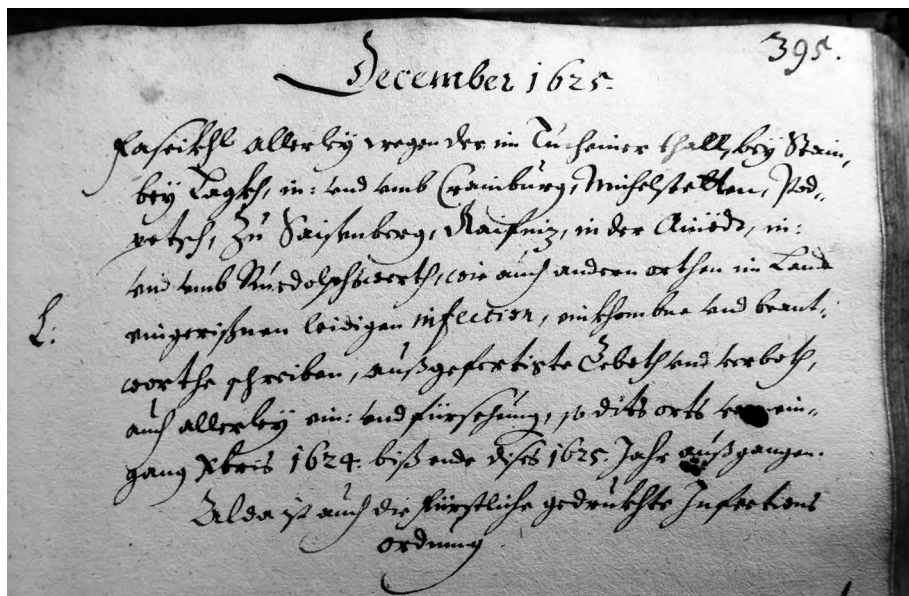 395.
December 1625.
Fascikhl allerley wegen der im Tucheiner thall, bey Stain,
bey Lagkh, in: vnd vmb Crainburg, Michelstetten, Pod„
petsch, Zu Saisenberg, Raifniz, in der Ainödt, in:
vnd vmb Ruedolphswerth, wie auch andern orthen im Landt
L:
eingerißnen leidigen infection, einkhombne vnd beant„
worthe schreiben, außgefertigte Geboth vnd verboth,
auch allerley ein: vnd fürsehung, so dits orts von ein„
gang Xbris 1624. biß ende dises 1625. Jahr außgangen.
Alda ist auch die Fürstliche gedrukhte Infections
ordnung